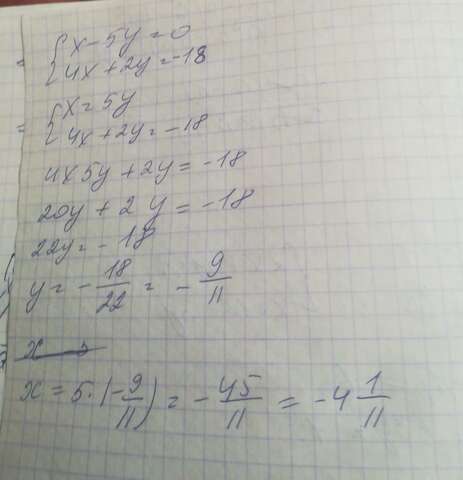 = { x - 5y = 0
4x + 2y = -18
= { x = 5y
4x + 2y = -18
4x5y + 2y = -18
20y + 2y = -18
22y = - 18
y = - 18/22 = - 9/11
x = 5 · (-9/11) = - 45/11 = -4 1/11